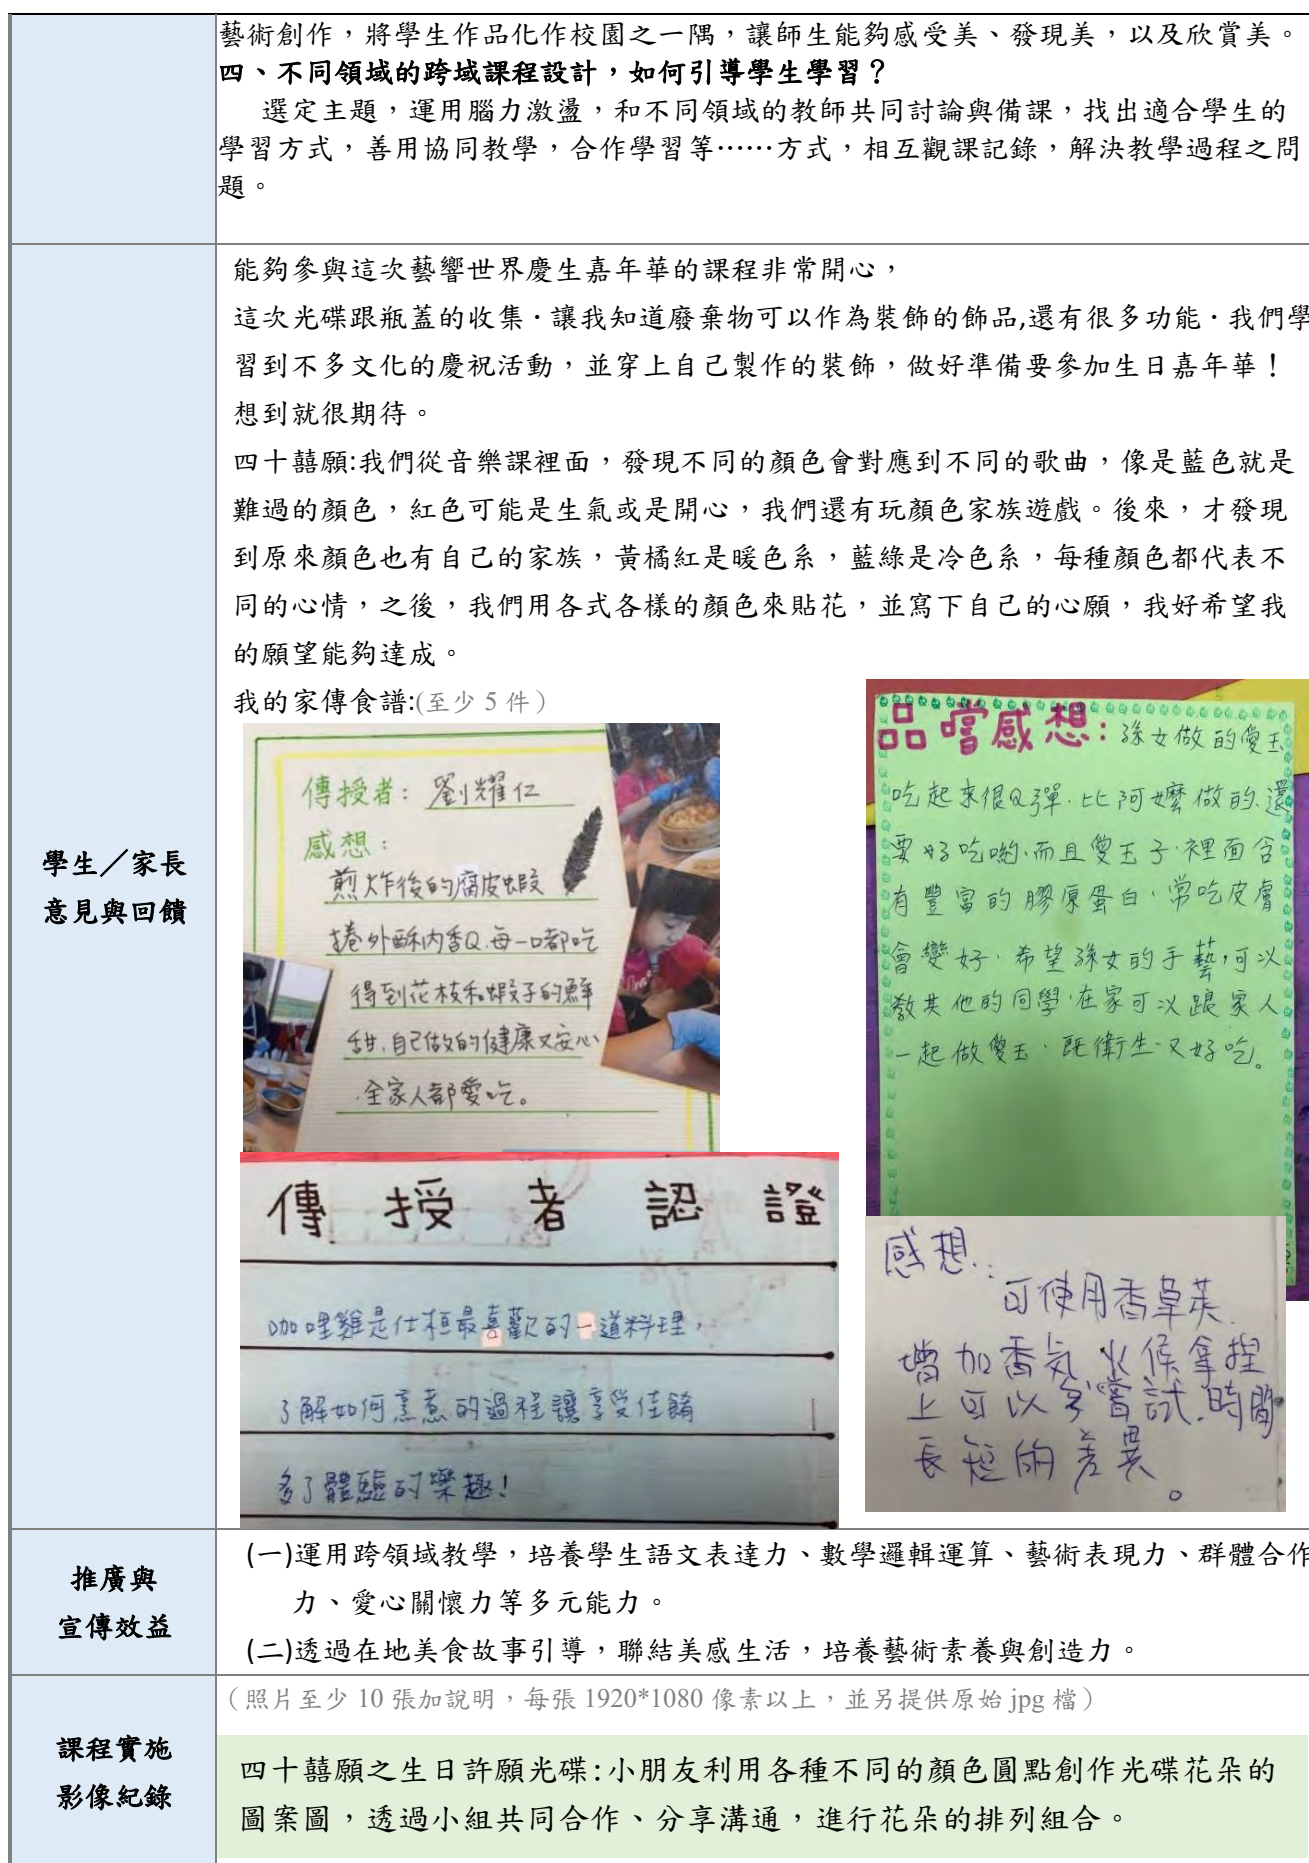 藝術創作，將學生作品化作校園之一隅，讓師生能夠感受美、發現美，以及欣賞美。
四、不同領域的跨域課程設計，如何引導學生學習？
選定主題，運用腦力激盪，和不同領域的教師共同討論與備課，找出適合學生的
學習方式，善用協同教學，合作學習等……方式，相互觀課記錄，解決教學過程之問
題。
學生／家長
意見與回饋
能夠參與這次藝響世界慶生嘉年華的課程非常開心，
這次光碟跟瓶蓋的收集．讓我知道廢棄物可以作為裝飾的飾品,還有很多功能．我們學
習到不多文化的慶祝活動，並穿上自己製作的裝飾，做好準備要參加生日嘉年華！
想到就很期待。
四十囍願:我們從音樂課裡面，發現不同的顏色會對應到不同的歌曲，像是藍色就是
難過的顏色，紅色可能是生氣或是開心，我們還有玩顏色家族遊戲。後來，才發現
到原來顏色也有自己的家族，黃橘紅是暖色系，藍綠是冷色系，每種顏色都代表不
同的心情，之後，我們用各式各樣的顏色來貼花，並寫下自己的心願，我好希望我
的願望能夠達成。
我的家傳食譜:(至少 5 件）
傳授者：劉耀仁
感想：
煎炸後的腐皮蝦
捲外酥內香Q.每一口都吃
得到花枝和蝦子的鮮
甜.自己做的健康又安心
全家人都愛吃。
品嚐感想：孫女做的愛玉
吃起來很Q彈.比阿嬤做的.還
要好吃喲.而且愛玉子.裡面含
有豐富的膠原蛋白.常吃皮膚
會變好.希望孫女的手藝,可以
教其他的同學.在家可以跟家人
一起做愛玉.既衛生.又好吃。
傳授者認證
咖哩雞是仕桓最喜歡的一道料理，
了解如何烹煮的過程讓享受佳餚
多了體驗的樂趣！
感想：
可使用香草莢
增加香気火候拿捏
上可以多嘗試.時間
長短的差異。
推廣與
宣傳效益
(一)運用跨領域教學，培養學生語文表達力、數學邏輯運算、藝術表現力、群體合作
力、愛心關懷力等多元能力。
(二)透過在地美食故事引導，聯結美感生活，培養藝術素養與創造力。
課程實施
影像紀錄
（照片至少 10 張加說明，每張 1920*1080 像素以上，並另提供原始 jpg 檔）
四十囍願之生日許願光碟:小朋友利用各種不同的顏色圓點創作光碟花朵的
圖案圖，透過小組共同合作、分享溝通，進行花朵的排列組合。